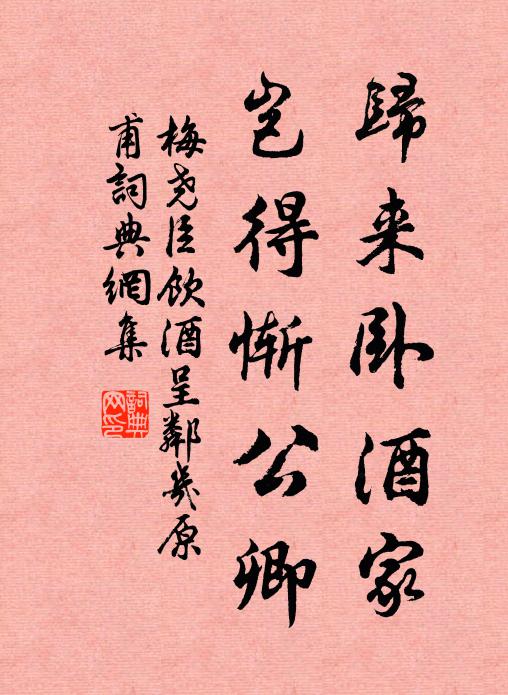 歸来卧酒家
豈得慚公卿
梅尧臣飲酒呈鄰幾原
甫詞典網集
詞典网印